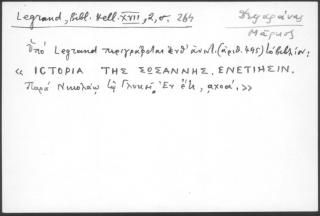 Legrand, Bibl. Hell. XVII, 2, σ. 264
Δεφαράνας
Μάρκος
Ὑπὸ Legrand περιγράφεται ἐνθ' ἀνωτ. (ἀριθ. 495)
« ΙΣΤΟΡΙΑ ΤΗΣ ΣΩΣΑΝΝΗΣ. ΕΝΕΤΙΗΣΙΝ.
Παρὰ Νικολάῳ τῷ Γλυκεῖ. Ἐν ἔτει, αχοα΄. »